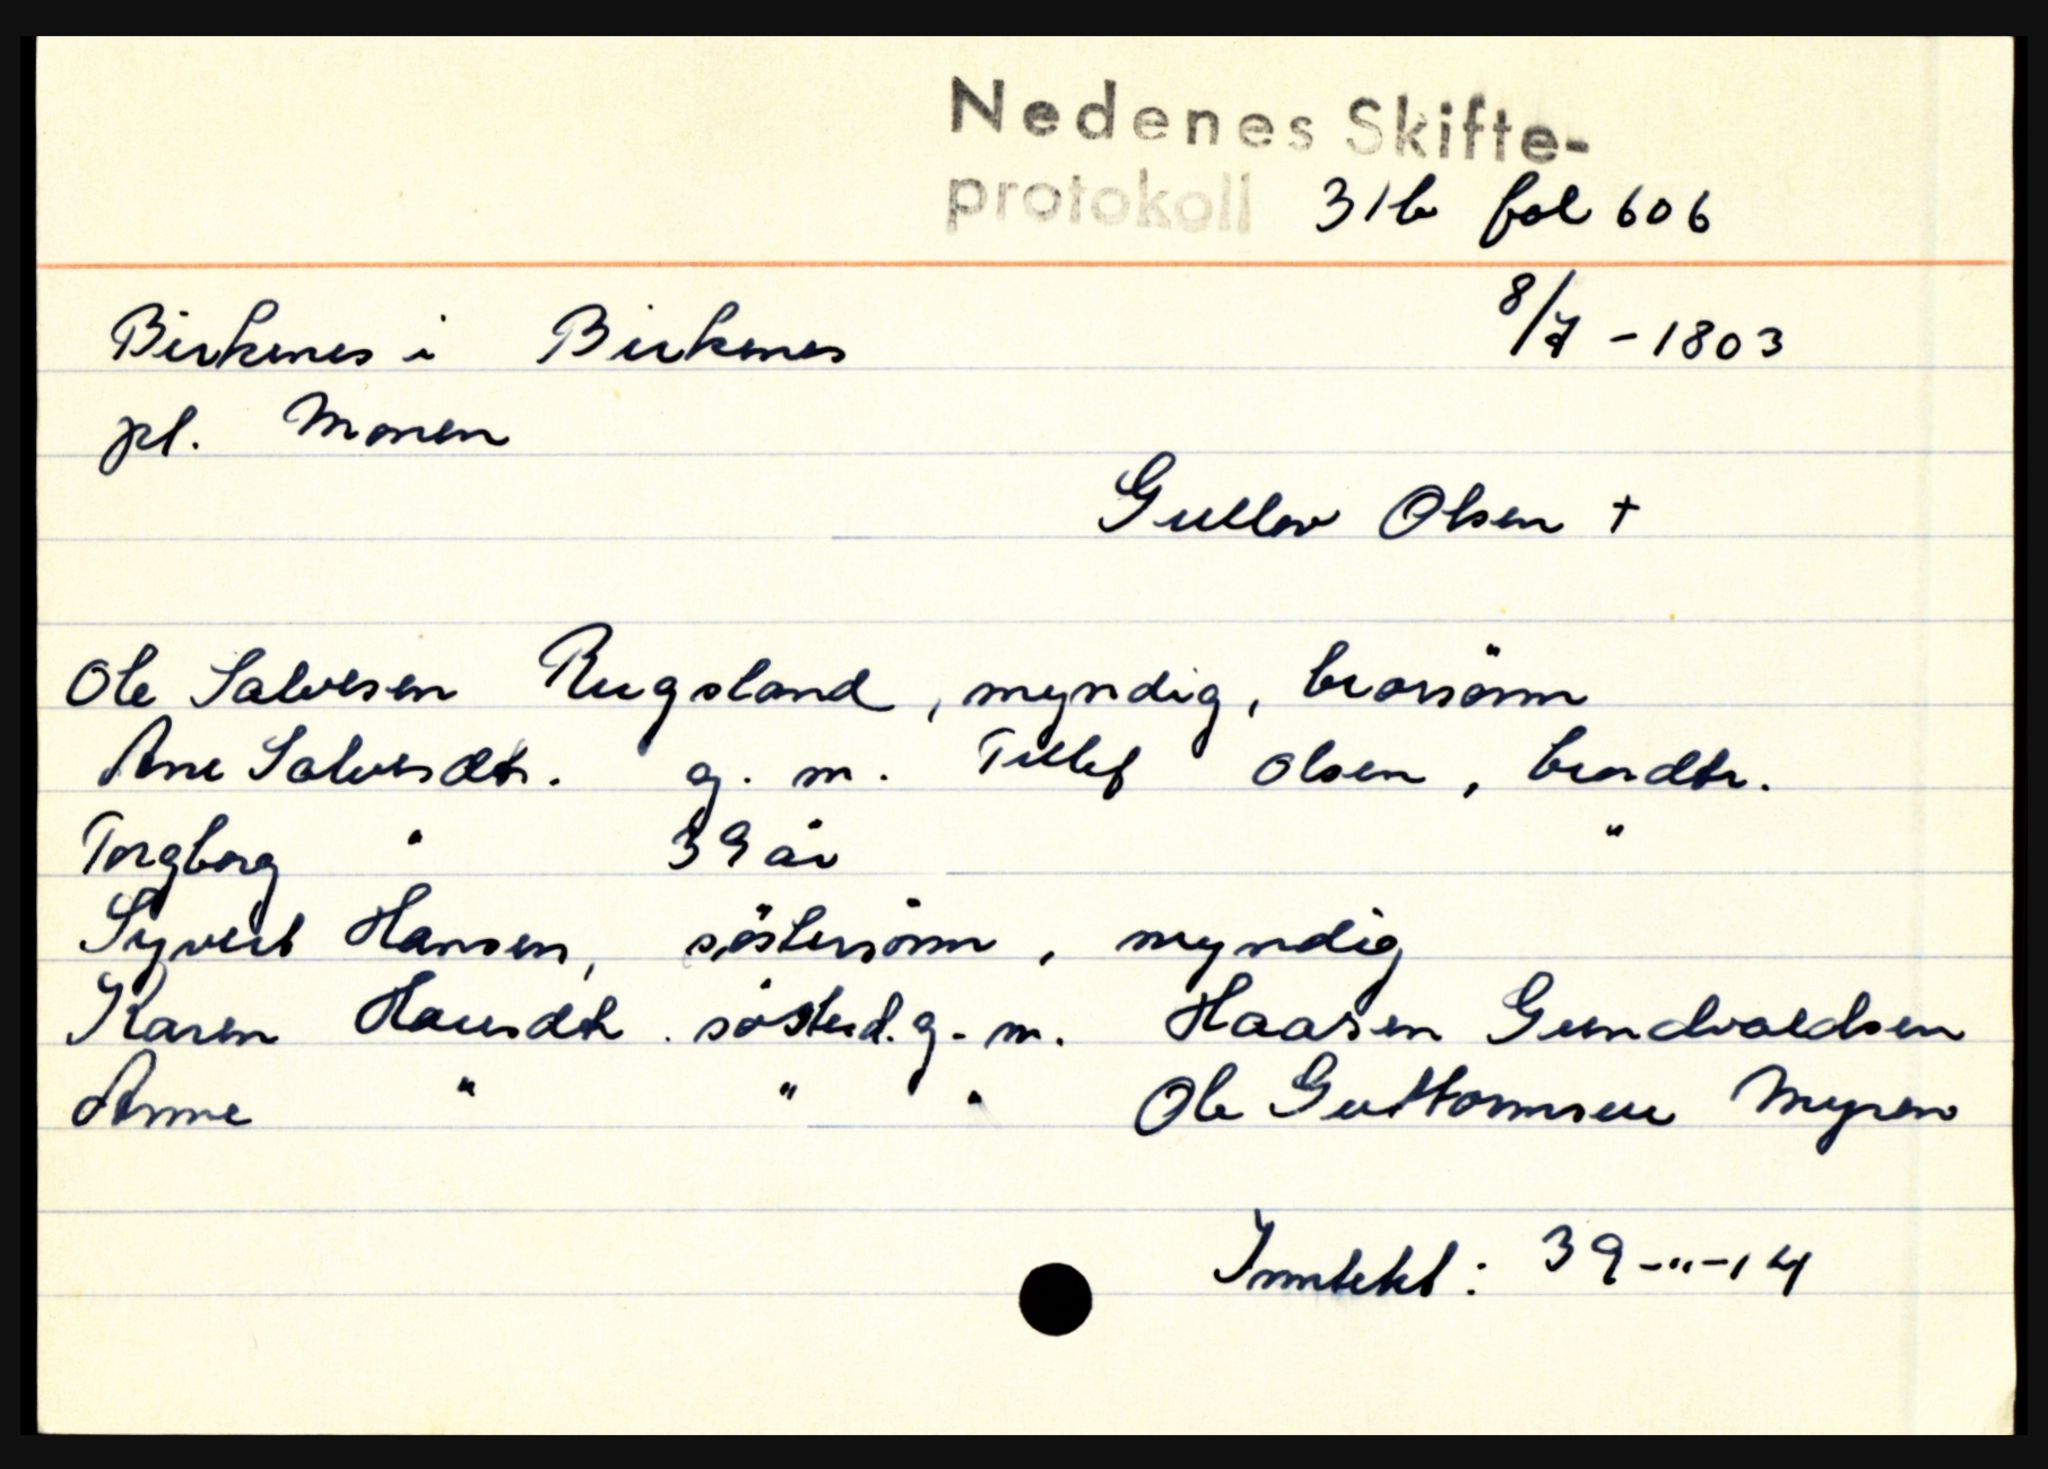 Nedenes Skifte-
protokoll 31b fol 606
8/7 - 1803
Birkenes i Birkenes
pl. Monen
Gullov Olsen +
Ole Salvesen Rugsland, myndig, brorsönn
Ane Salvesdtr. g. m. Tellef Olsen, brordtr.
Torgborg " 39 år "
Syvert Hansen, söstersönn, myndig
Karen Hansdtr. sösterd. g. m. Haagen Gundvaldsen
Anne " " " Ole Guttormsen Myren
Inntekt: 39-"-14